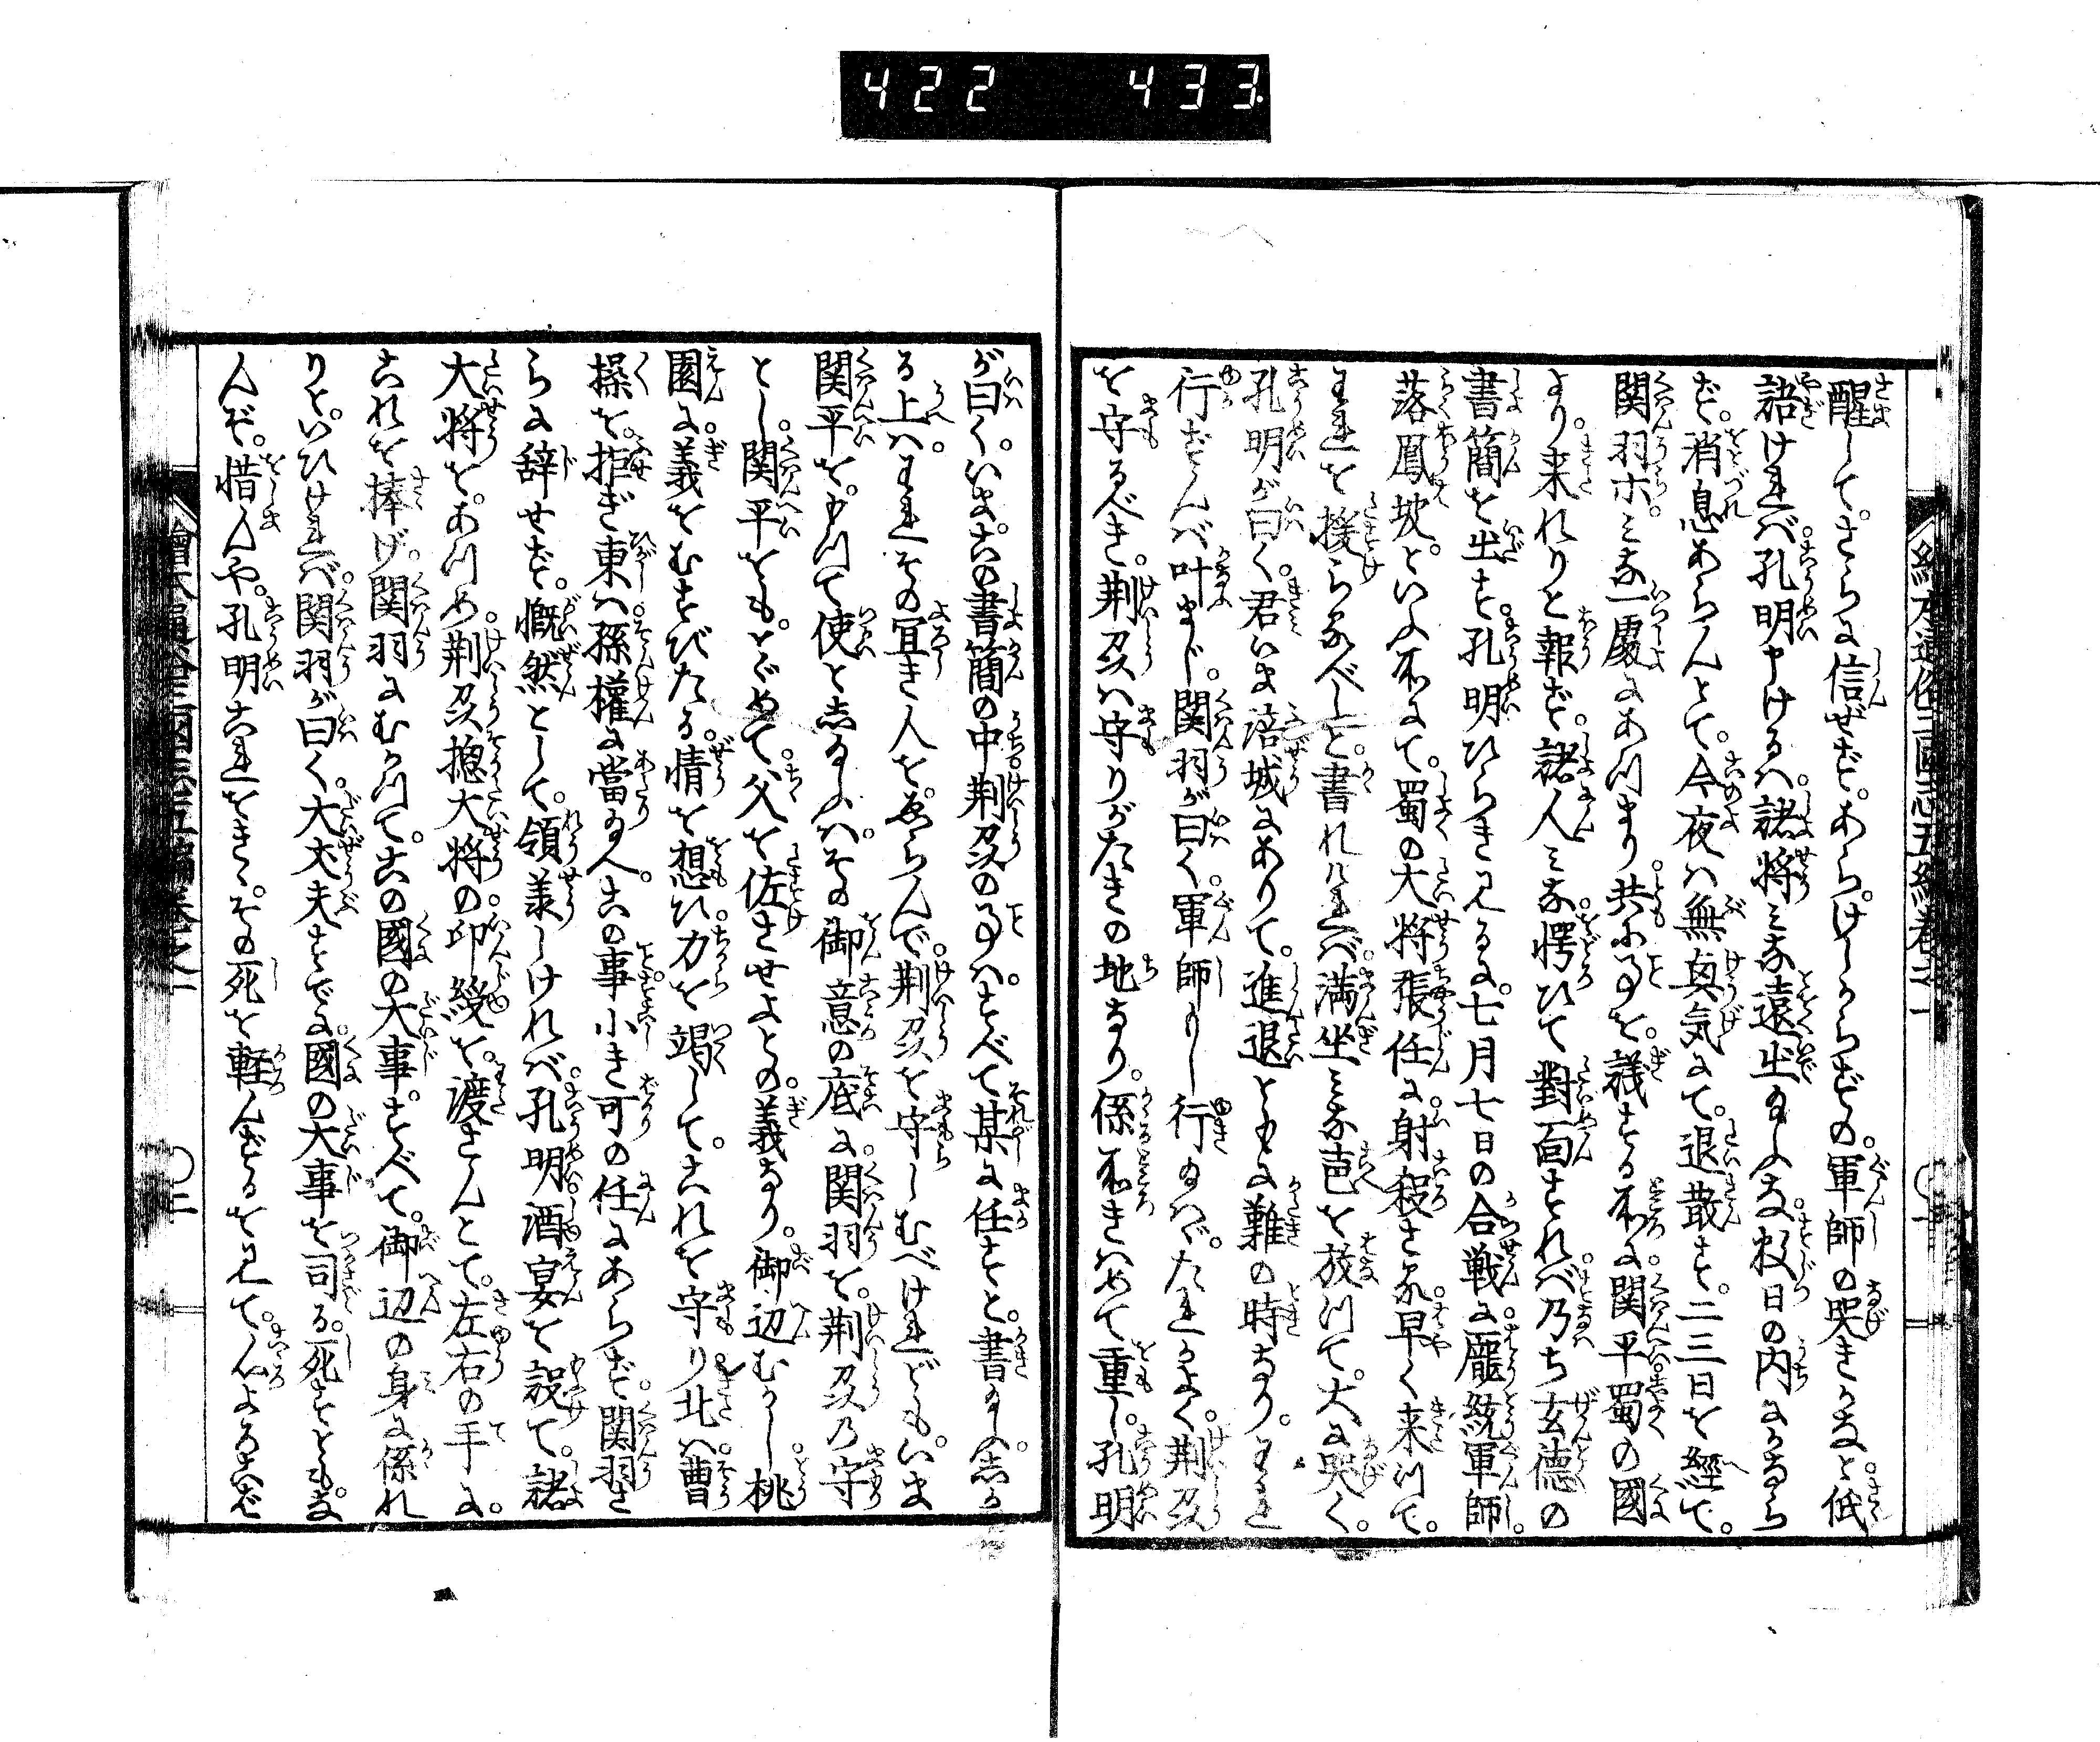 422 433
醒して。さらに信ぜず。あら。けしからずの。軍師の哭きかなと。低
語ければ。孔明申けるは。諸将みな遠出給ふな。数日の内にかなら
ず。消息あらんとて。今夜は無真気にて。退散す。二三日を經て。
関羽ホ。みな一處にあつまり。共にことを。議する所に。関平蜀の國
より。来れりと報ず。諸人みな。愕ひて對面すれば。乃ち玄徳の
書簡を出す。孔明ひらき見るに。七月七日の合戦に。龐統軍師。
落鳳坡といふ所にて。蜀の大将張任に射殺さる。早く来つて。
われを援らるべしと。書れければ。満坐みな声を放つて。大に哭く。
孔明が曰く。君いま涪城にありて。進退ともに難の時なり。われ
行ずんば叶まじ。関羽が曰く。軍師もし行給はゞ。たれかよく。荆刕
を守るべき。荆刕は守りがたきの地なり。係所きはめて重し。孔明
が曰く。いまこの書簡の中。荆刕のことは。すべて某に任すと。書給ふ。しか
る上は。われその宜き人をゑらんで。荆刕を守しむべけれども。いま
関平を。もつて使としるふは。その御意の底に。関羽を。荆刕乃守
とし。関平をも。とゞめて。父を佐させよとの。義なり。御辺むかし桃
園に。義をむすびたる。情を想ひ。力を竭して。これを守り。北は曹
操を。拒ぎ。東は孫權に當る人。この事小き可の任にあらず。関羽さ
らに辞せず。慨然として。領掌しければ。孔明酒宴を設て。諸
大将を。あつめ。荆刕揔大将の。印綬を。渡さんとて。左右の手に。
これを捧げ。関羽にむかつて。この國の大事。すべて。御辺の身に係れ
りと。いひければ。関羽が曰く。大丈夫すでに。國の大事を司る。死すともな
んぞ。惜んや。孔明これをきゝ。その死を軽んずるを見て。心よろこばず
繪本通俗三國志五編巻之一
〇二